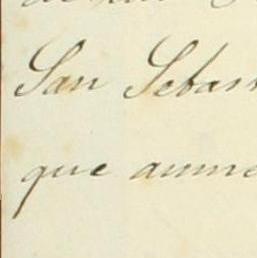 San Sebas
que aume